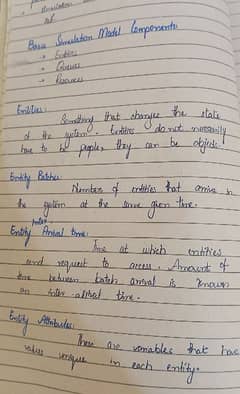 Simulation
Basic Simulation Model Components
→ Entities
→ Queues
→ Resources
Entities:
Something that changes the state
of the system. Entities do not necessarily
have to be people, they can be objects.
Entity Batches:
Number of entities that arrive in
the system at the same given time.
Inter
Entity Arrival time:
Time at which entities
and request to access. Amount of
time between batch arrival is known
an inter-arrival time.
Entity Attributes:
These are variables that have
values unique in each entity.